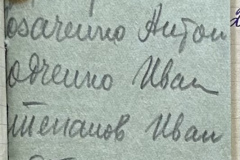 осаченко Антон
одченко Иван
Степанов Иван